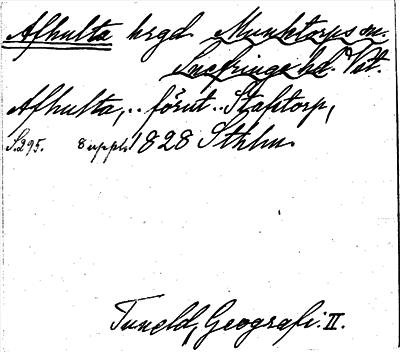 Afhulta hrgd Munktorps sn.
Snefringe hd. Vst.
Afhulta, .. förut .. Staftorp,
S. 295. 8 uppl. 1828 Sthlm.
Tuneld, Geografi. II.